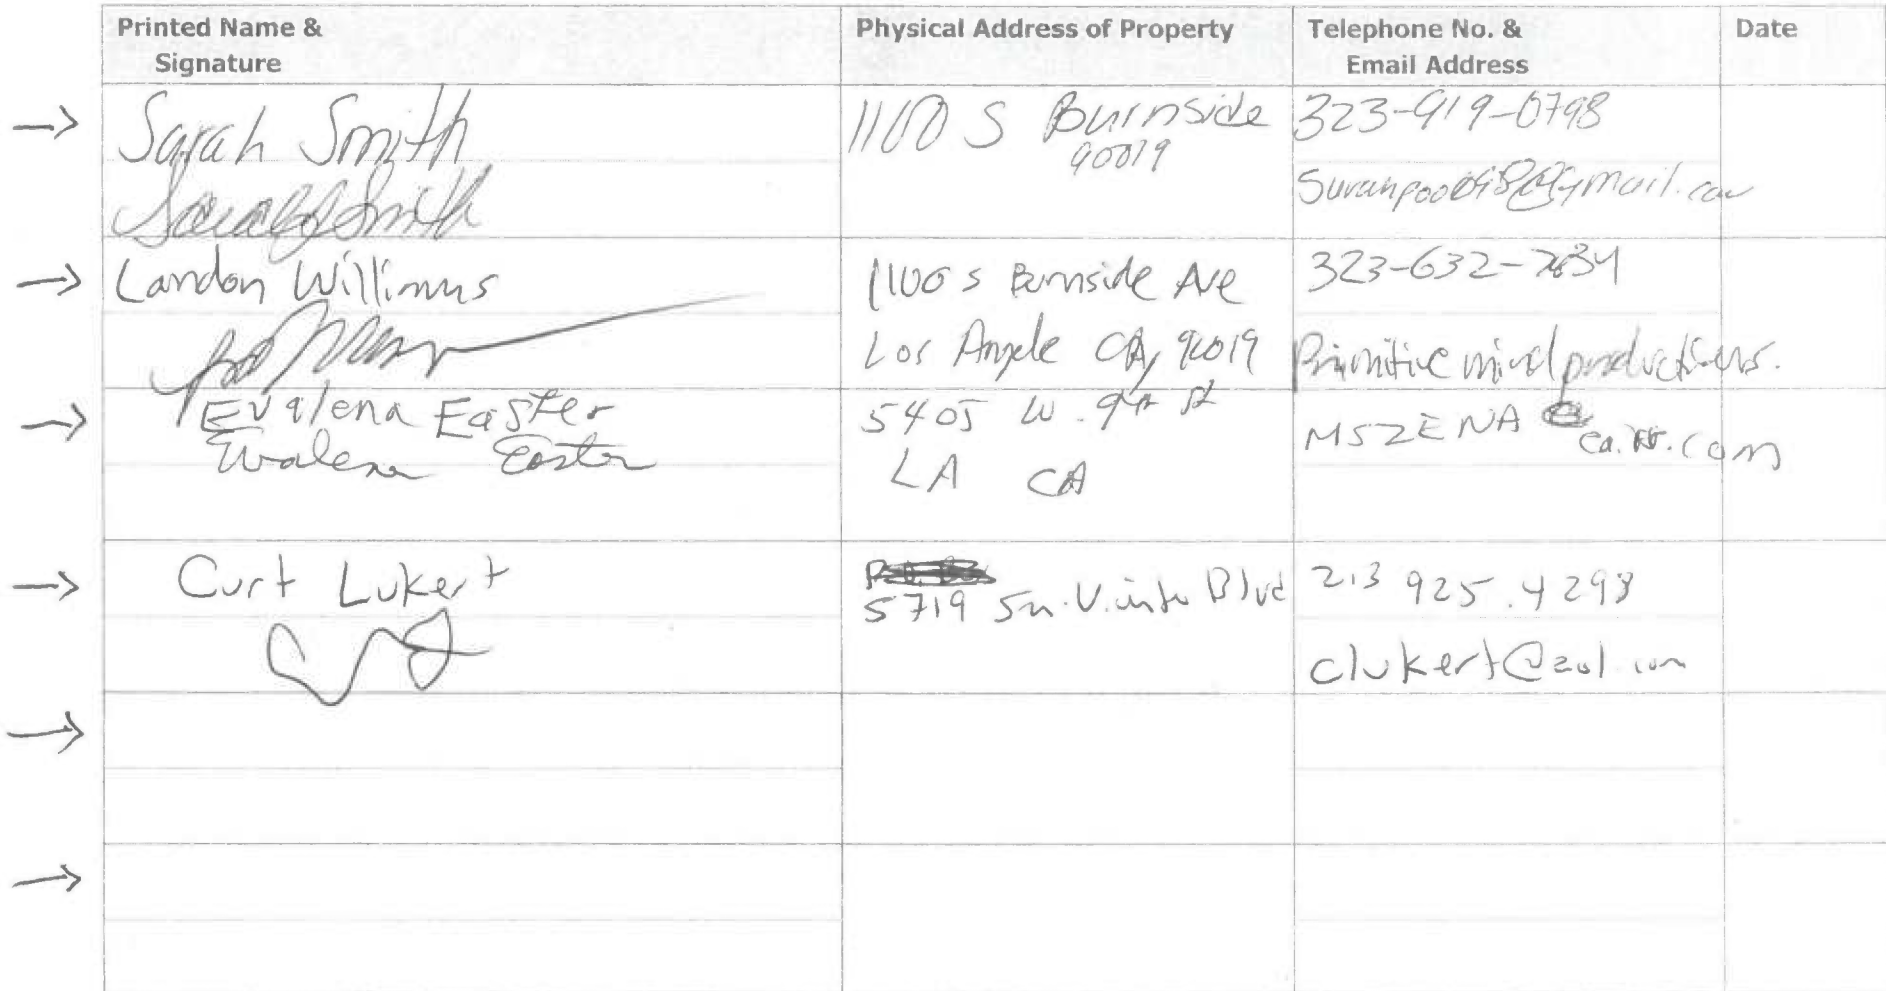 Printed Name &
Signature
Physical Address of Property
Telephone No. &
Email Address
Date
Sarah Smith
Sarah Smith
1100 S Burnside
90019
323-919-0798
Landon Willimus
1100 S Burnside Ave
Los Angele CA, 90019
323-632-
Primitive mind productions.
Evalena Easter
Evalena Easter
5405 W. 9th St
LA CA
MSZENA @ ca.rr.com
Curt Lukert
5719 Sn. Vinte Blvd
213 925.4293
clukert@aol.com